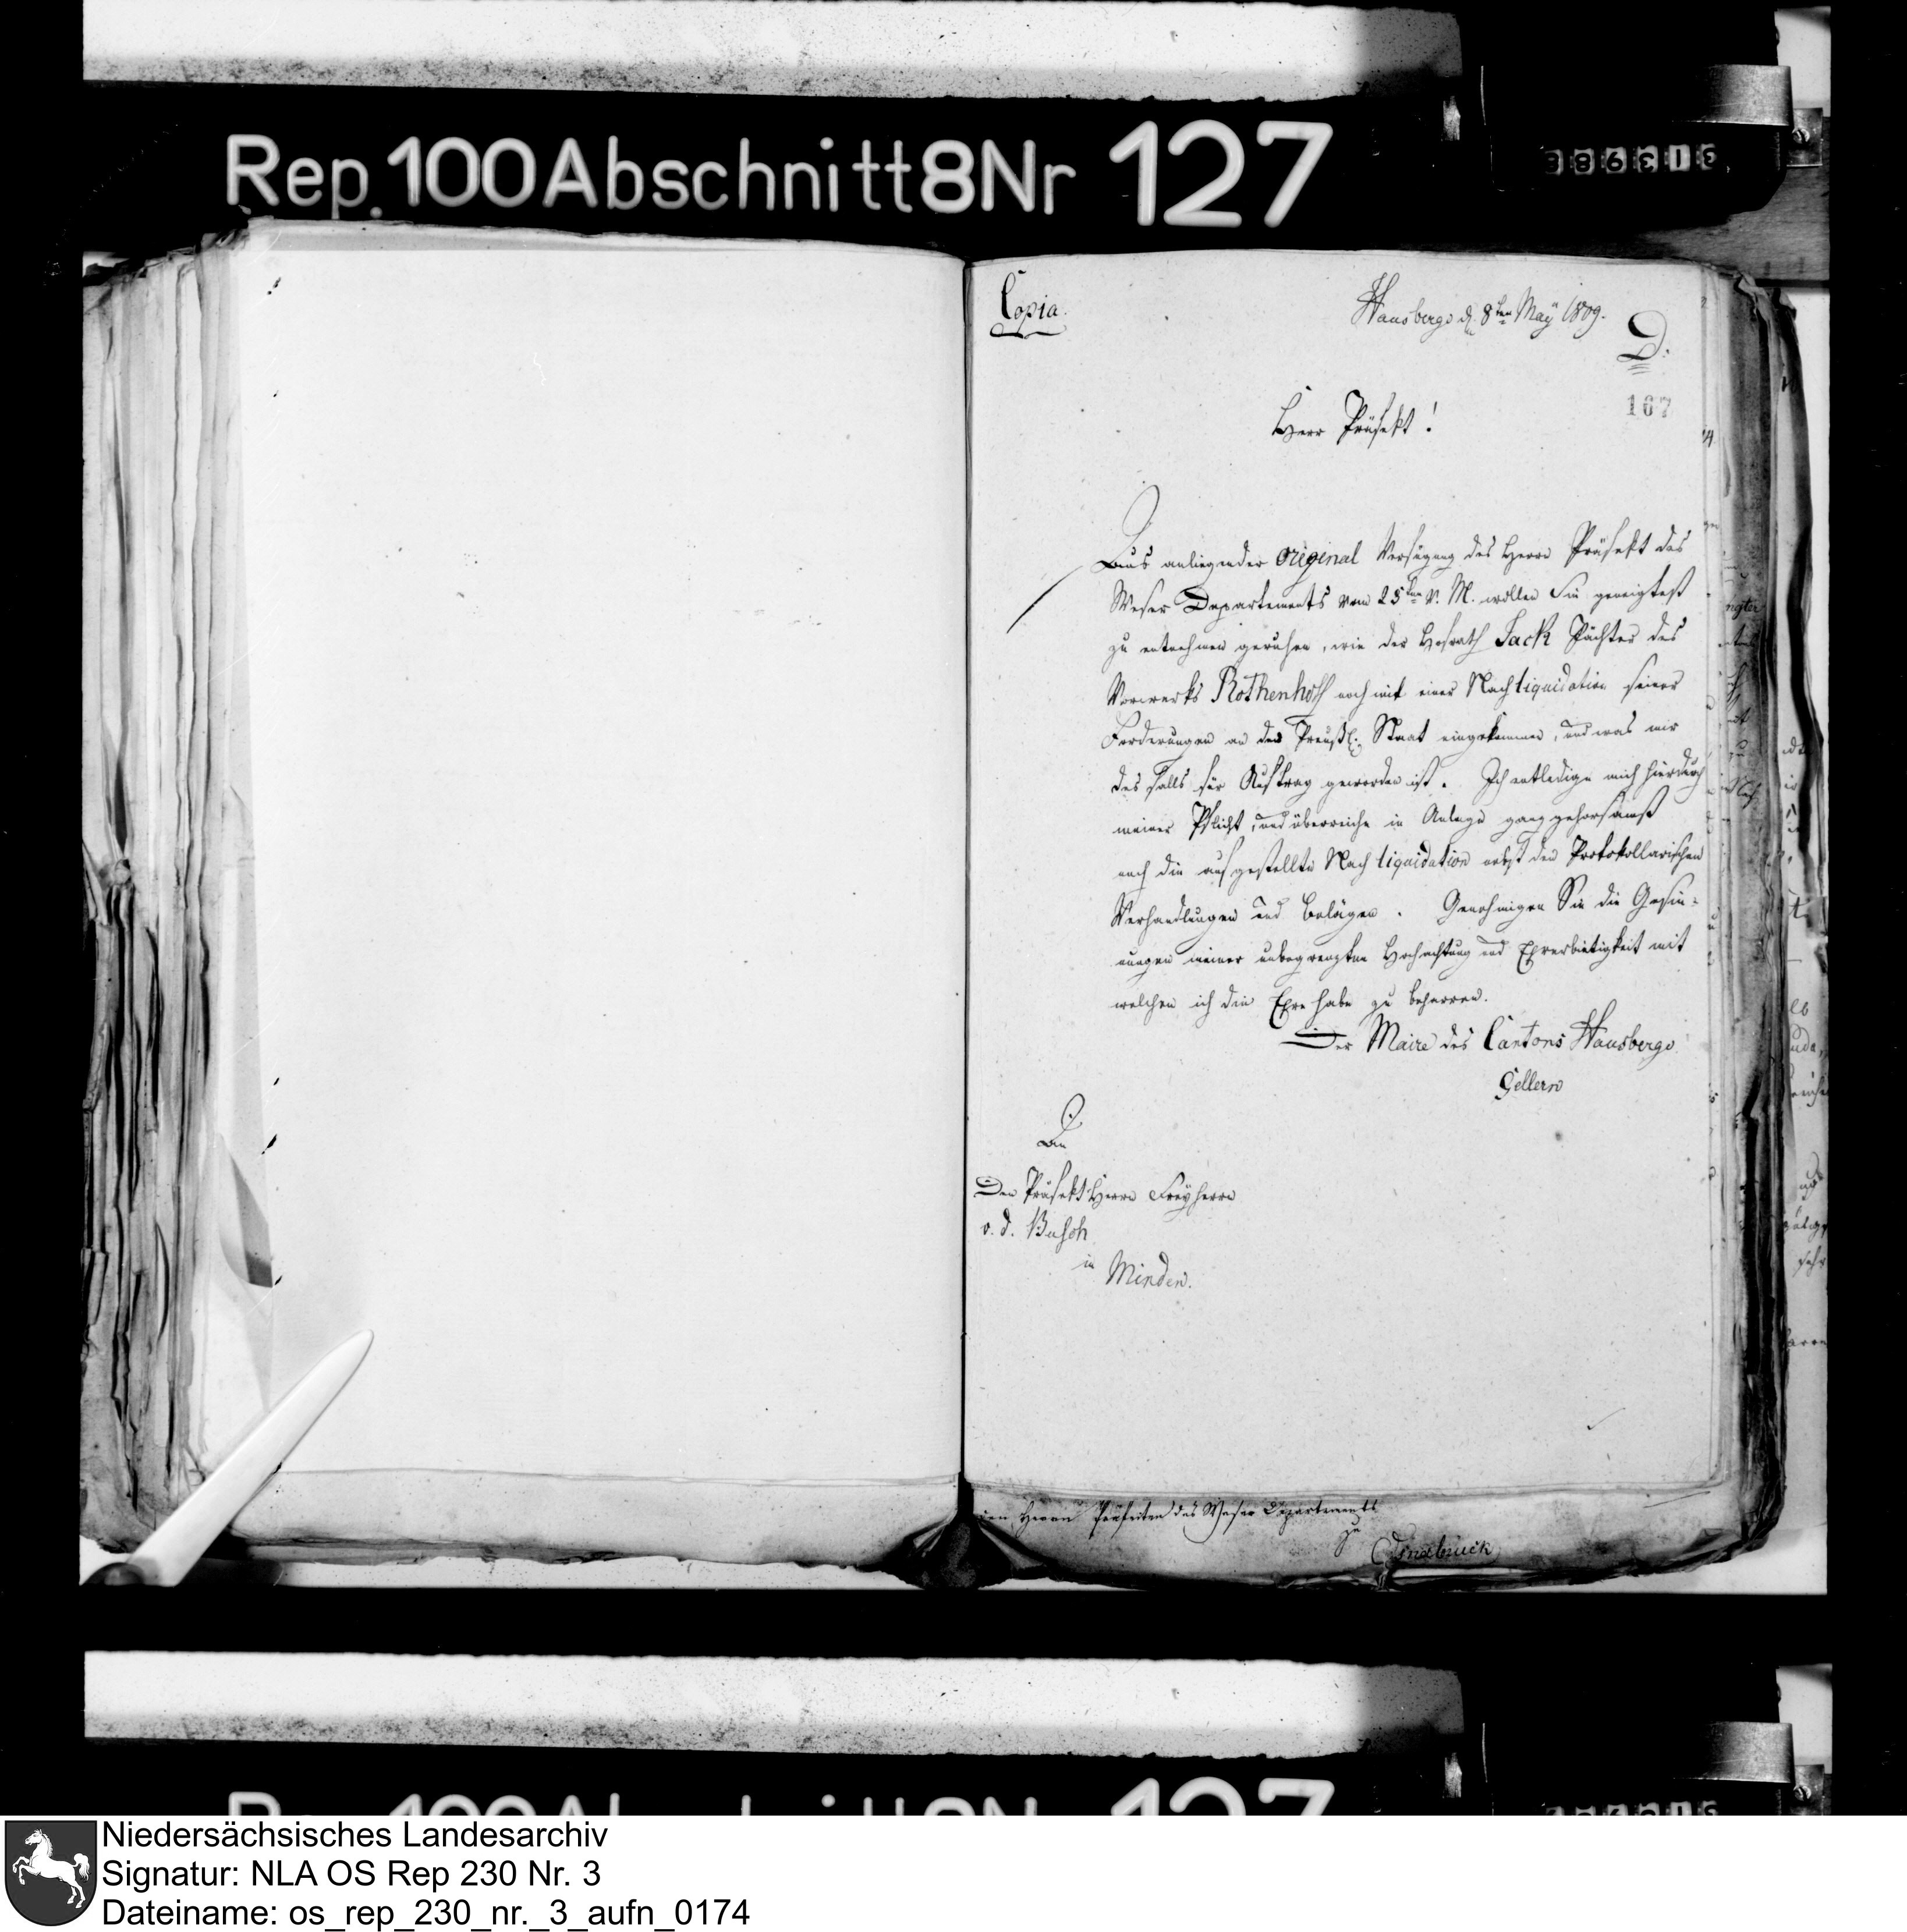 Rep. 100 Abschnitt 8 Nr 127
Copia.
Hausberge d. 8ten May 1809.
D.
167
Herr Präfekt!
Aus anliegender Original Verfügung des Herrn Präfekt des
Weser Departements vom 25ten v. M. wollen Sie geneigtest
zu entnehmen geruhen, wie der Hofrath Jack Pächter des
Vorwerks Rothenhoff noch mit einer Nachliquidation seiner
Forderungen an den Preußl. Staat eingekommen, und was mir
des falls für Auftrag geworden ist. Ich entledige mich hierdurch
meiner Pflicht, und überreiche in Anlage ganz gehorsamst
auch die aufgestellte Nachliquidation nebst den Protokollarischen
Verhandlungen und Belägen. Genehmigen Sie die Gesin-
nungen meiner unbegrenzten Hochachtung und Ehrerbietigkeit mit
welchen ich die Ehre habe zu beharren.
Der Maire des Cantons Hausberge
Gellern
An
Den Präfekt Herrn Freyherrn
v. d. Busch
in Minden.
den Herrn Präfecten des Weser Departements
zu
Osnabrück
Niedersächsisches Landesarchiv
Signatur: NLA OS Rep 230 Nr. 3
Dateiname: os_rep_230_nr._3_aufn_0174